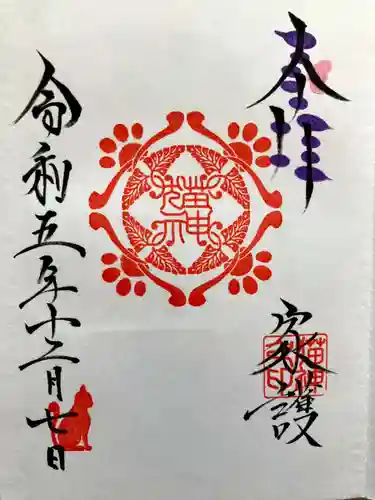 奉拝
家護
猫神
令和五年十二月七日